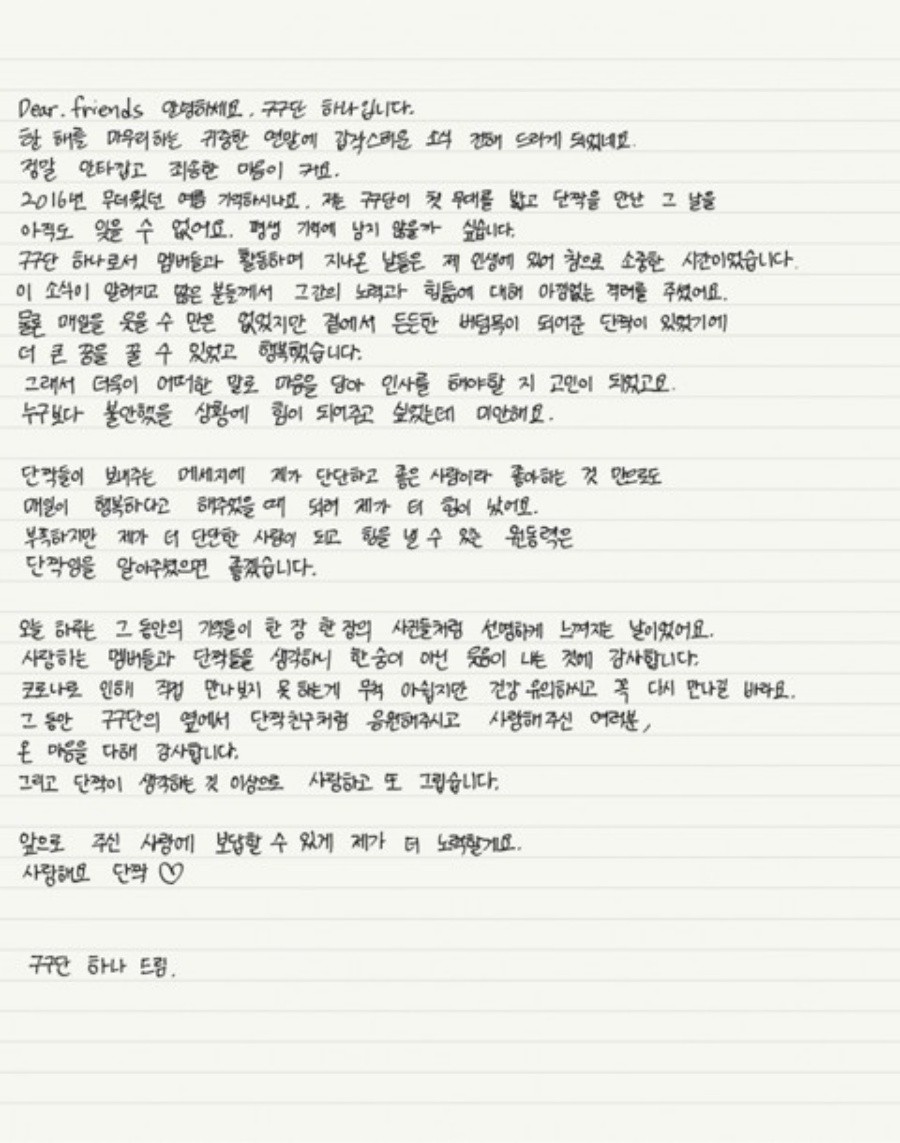 Dear. friends 안녕하세요. 구구단 하나입니다.
한 해를 마무리하는 귀중한 연말에 갑작스러운 소식 전해 드리게 되었네요.
정말 안타깝고 죄송한 마음이 커요.
2016년 무더웠던 여름 기억하시나요. 저는 구구단이 첫 무대를 밟고 단짝을 만난 그 날을
아직도 잊을 수 없어요. 평생 기억에 남지 않을까 싶습니다.
구구단 하나로서 멤버들과 활동하며 지나온 날들은 제 인생에 있어 참으로 소중한 시간이었습니다.
이 소식이 알려지고 많은 분들께서 그간의 노력과 힘듦에 대해 아낌없는 격려를 주셨어요.
물론 매일을 웃을 수 만은 없었지만 곁에서 든든한 버팀목이 되어준 단짝이 있었기에
더 큰 꿈을 꿀 수 있었고 행복했습니다.
그래서 더욱이 어떠한 말로 마음을 담아 인사를 해야할 지 고민이 되었고요.
누구보다 불안했을 상황에 힘이 되어주고 싶었는데 미안해요.
단짝들이 보내주는 메세지에 제가 단단하고 좋은 사람이라 좋아하는 것 만으로도
매일이 행복하다고 해주었을 때 되려 제가 더 힘이 났어요.
부족하지만 제가 더 단단한 사람이 되고 힘을 낼 수 있는 원동력은
단짝임을 알아주셨으면 좋겠습니다.
오늘 하루는 그 동안의 기억들이 한 장 한 장의 사진들처럼 선명하게 느껴지는 날이었어요.
사랑하는 멤버들과 단짝들을 생각하니 한숨이 아닌 웃음이 나는 것에 감사합니다.
코로나로 인해 직접 만나보지 못 하는게 무척 아쉽지만 건강 유의하시고 꼭 다시 만나길 바라요.
그 동안 구구단의 옆에서 단짝친구처럼 응원해주시고 사랑해 주신 여러분,
온 마음을 다해 감사합니다.
그리고 단짝이 생각하는 것 이상으로 사랑하고 또 그립습니다.
앞으로 주신 사랑에 보답할 수 있게 제가 더 노력할게요.
사랑해요 단짝 ♡
구구단 하나 드림.